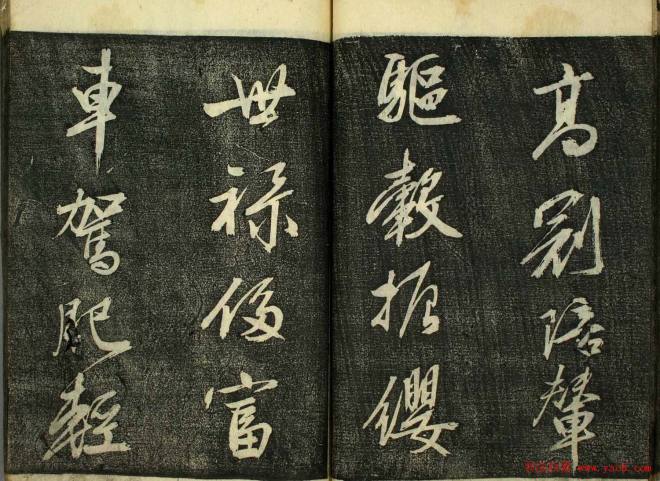 高冠陪輦
驅轂振纓
世祿侈富
車駕肥輕
www.yac8.com